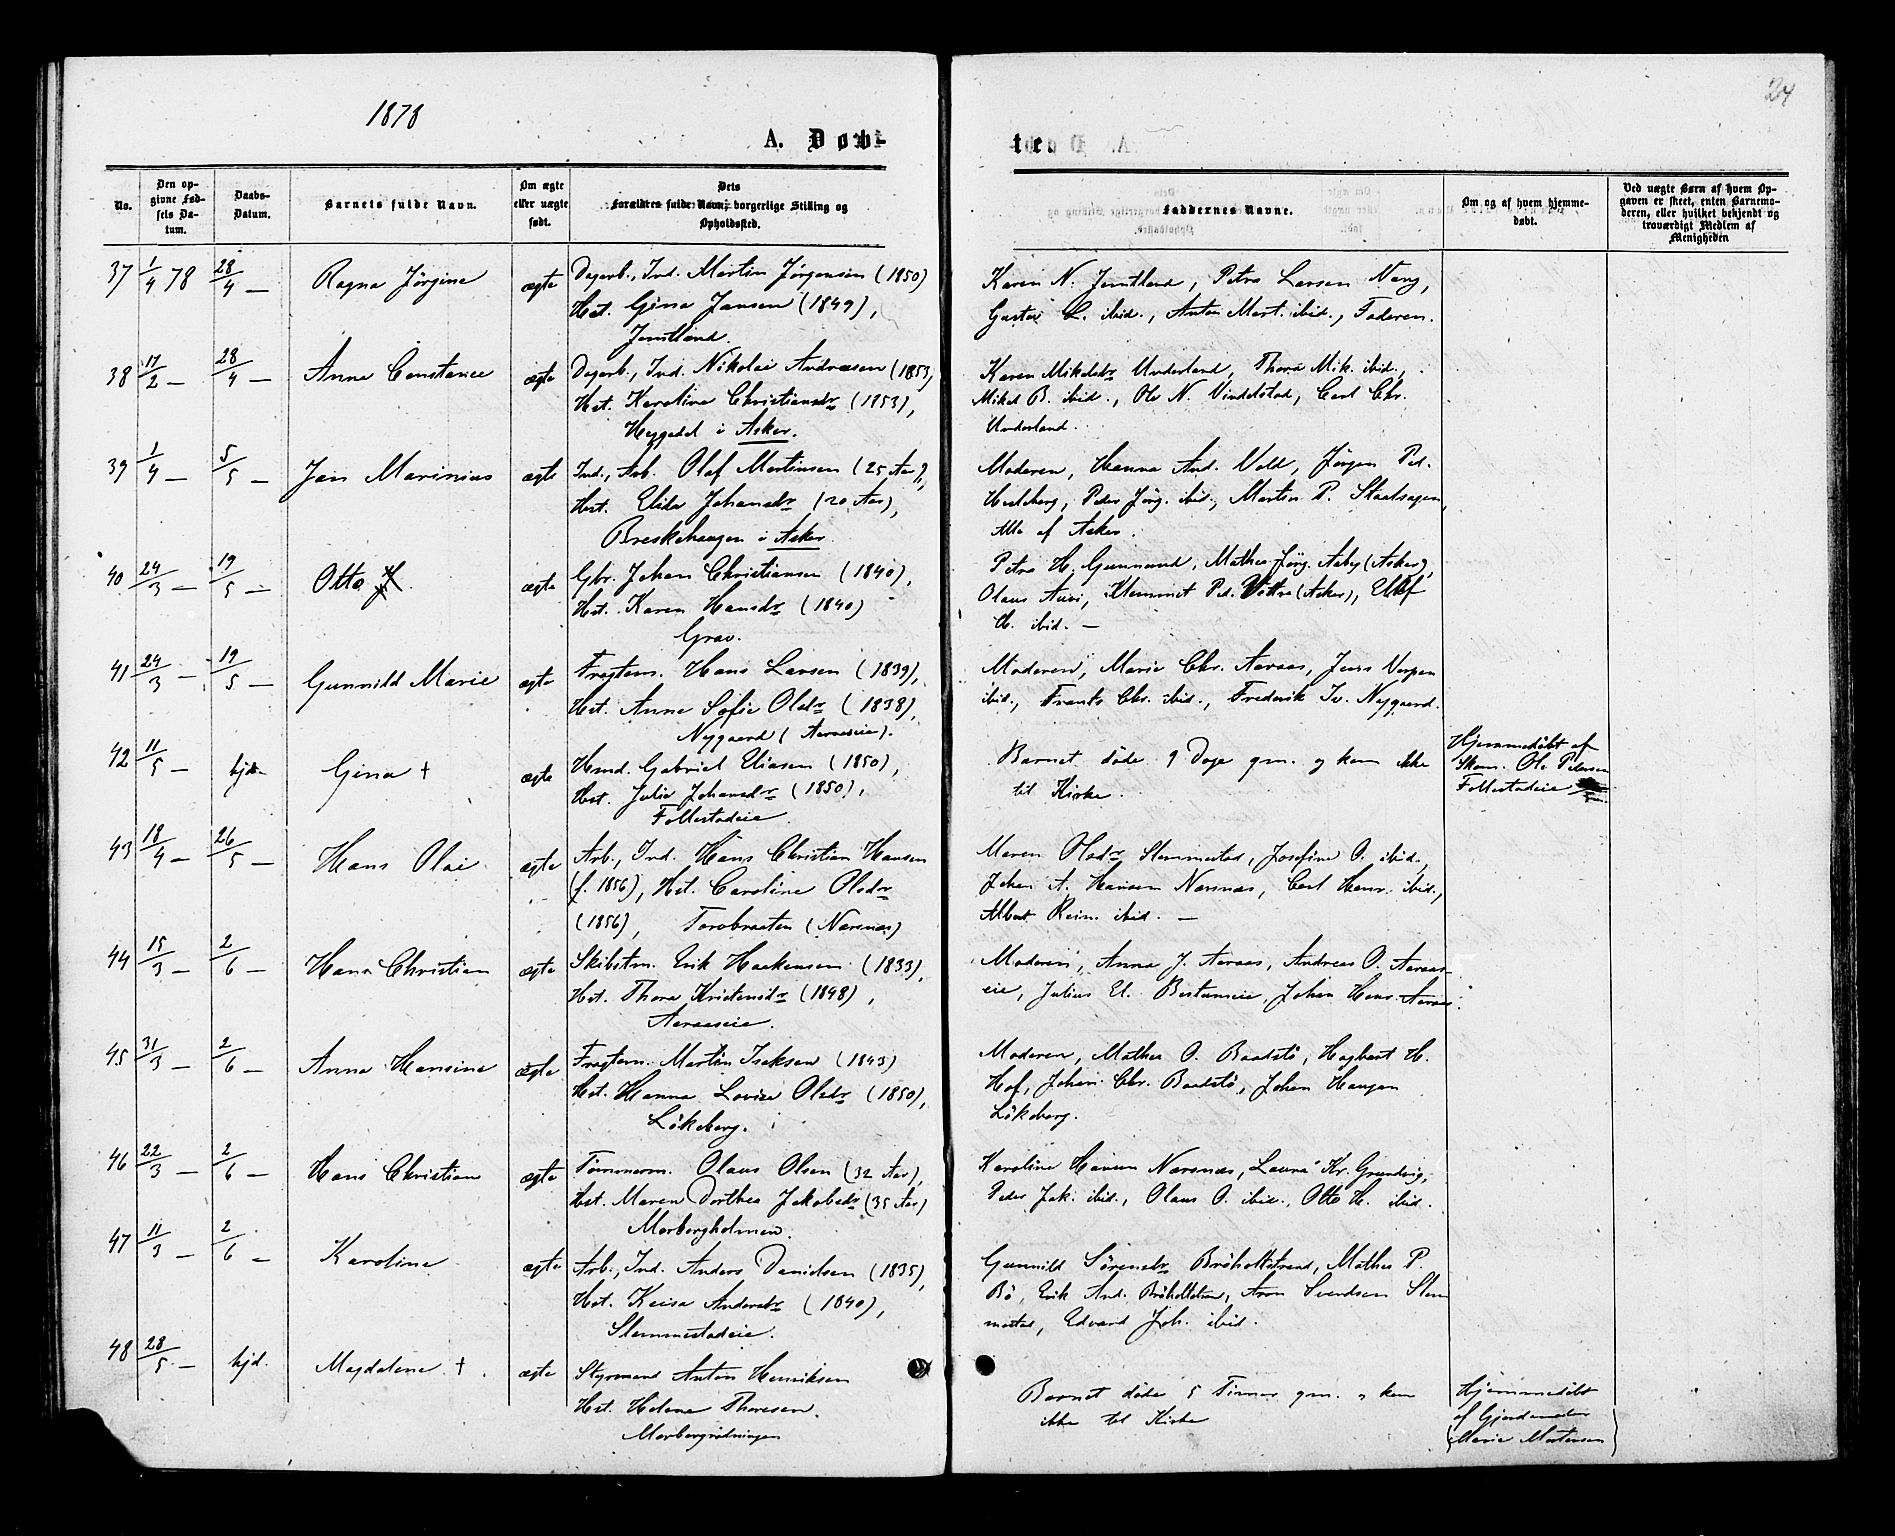 1878
24
A. Døb-
te.
No.
Den op-
givne Fød-
sels Da-
tum.
Daabs-
Datum.
Barnets fulde Navn.
Om ægte
eller uægte
født.
Dets
Forældres fulde Navn, borgerlige Stilling og
Opholdssted.
Faddernes Navne.
Om og af hvem hjemme-
døbt.
Ved uægte Børn af hvem Op-
gaven er skeet, enten Barnemo-
deren, eller hvilket bekjendt og
troværdigt Medlem af
Menigheden
37 1/4 78 28/4 — Ragna Jørgine ægte Dagarb., Ind. Martin Jørgensen (1850)
Hst. Gina Jansen (1849),
Jemtland.
Karen N. Jemtland, Petra Larsen Narg,
Gustav L. ibid., Anton Mart. ibid., Faderen.
38 17/2 — 28/4 — Anna Constance ægte Dagarb., Ind. Nikolai Andreasen (1853,
Hst. Karoline Christiansdr (1853),
Heggedal i Asker.
Karen Mikelsdr Underland, Thora Mik. ibid.,
Mikel B. ibid., Ole N. Vindelstad, Carl Chr.
Underland.
39 1/4 — 5/5 — Jan Marinius ægte Ind., Arb. Olaf Martinsen (25 Aar),
Hst. Elida Johansdr (20 Aar),
Breskehaugen i Asker.
Moderen, Hanna And. Vold, Jørgen Ped.
Hvalsberg, Peder Jørg. ibid., Martin P.
Alle af Asker.
40 24/3 — 19/5 — Otto ægte Gbr. Johan Christiansen (1840),
Hst. Karen Hansdr (1840)
Grav.
Petra H. Gunnerud, Mathea Jørg. Aaby (Asker),
Olaus Auvi, Klemmet Ped. Vøttra (Asker),
H. ibid. —
41 24/3 — 19/5 — Gunnild Marie ægte Fragtem. Hans Larsen (1839),
Hst. Anne Sofie Olsdr (1838),
Nygaard (Aaraaseie).
Moderen, Marie Chr. Aaraas, Jens
ibid., Frants Chr. ibid., Frederik Iv. Nygaard.
42 11/5 — hjd. Gina † ægte Hmd. Gabriel Eliasen (1850),
Hst. Julie Johansdr (1850),
Follestadeie.
Barnet døde 9 Dage gm. og kom ikke
til Kirke.
Hjemmedøbt af
Skom. Ole Petersen
Follestadeie
43 18/4 — 26/5 — Hans Olai ægte Arb., Ind. Hans Christian Hansen
(f. 1856), Hst. Caroline Olsdr
(1856), Torvbraaten (Narsnæs)
Maren Olsdr Slemmestad, Josefine O. ibid.,
Johan A. Hansen Narsnæs, Carl Hans. ibid.,
Albert Rein. ibid. —
44 15/3 — 2/6 — Hans Christian ægte Skibstm. Erik Haakensen (1833),
Hst. Thora Kristensdr (1848),
Aaraaseie.
Moderen, Anna J. Aaraas, Andreas O. Aaraas-
eie, Julius El. Johan Hans. Aaraas.
45 31/3 — 2/6 — Anna Hansine ægte Fragtem. Martin Isaksen (1843)
Hst. Hanna Lovise Olsdr (1850),
Løkeberg.
Moderen, Mathea O. Baadstø, Hagbart H.
Hof, Johan Chr. Baadstø, Johan Haugen
Løkeberg.
46 22/3 — 2/6 — Hans Christian ægte Tømmerm. Olaus Olsen (32 Aar),
Hst. Maren Dorthea Jakobsdr (35 Aar)
Morbergholmen.
Karoline Hansen Narsnæs, Laura Kr. Grundvig,
Peder Jak. ibid., Olaus O. ibid., Otto H. ibid.
47 11/3 — 2/6 — Karoline ægte Arb., Ind. Anders Danielsen (1835),
Hst. Kaisa Andersdr (1840),
Slemmestadeie.
Gunnild Sørensdr Brøholtstrand, Mathea P.
Bø, Erik And. Brøholtstran, Aron Svendsen Slem
mestad, Edvard Joh. ibid.
48 28/5 — hjd. Magdalena † ægte Styrmand Anton Henriksen
Hst. Helene Thoresen,
Morbergrødningen
Barnet døde 5 Timer gm. og kom
ikke til Kirke
Hjemmedøbt
af Gjordemoder
Marie Mortensen